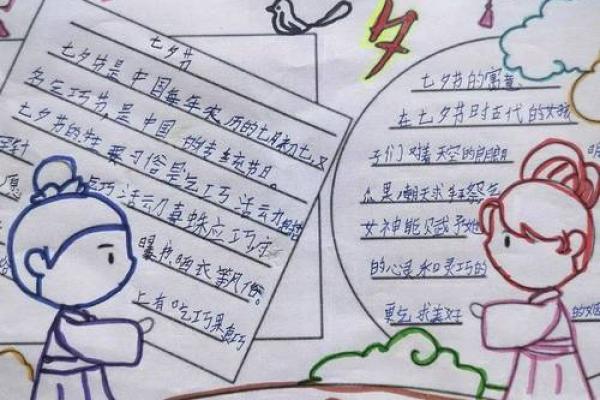 夕
七夕节
七夕节是中国每年农历的七月初七,又
名乞巧节,是中国的传统节日。
七夕节的 要习俗是乞巧活动
乞巧活动 蛛应巧
曝书晒衣等风俗。
上有吃巧果
七夕节的寓意
在七夕节时古代的女孩
子们对着天空的朗朗
瓜果朝天
女神能赋予她
的心灵和灵巧的
更乞求美好